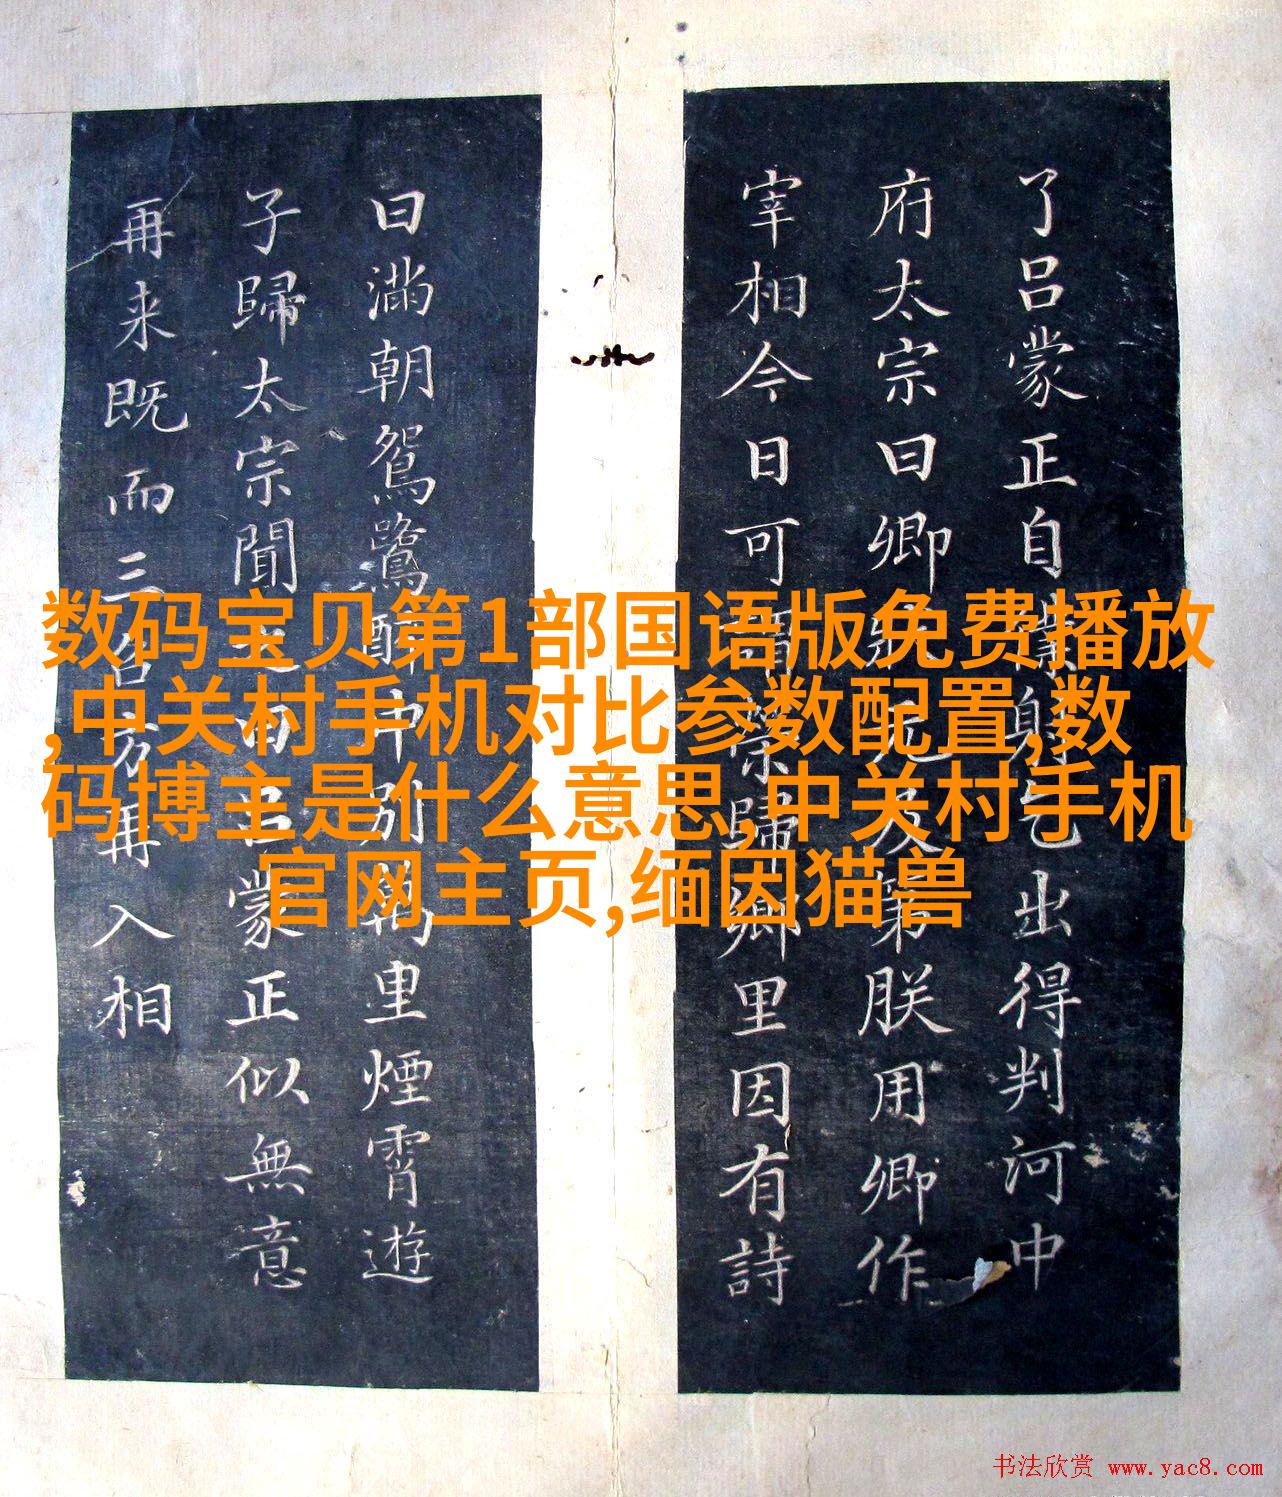 了吕蒙正自身乞出得判河中
府太宗曰卿狀元及第朕用卿作
宰相今日可謂榮歸鄉里因有詩
曰滿朝鴛鷺醉中别萬里煙霄遊
子歸太宗聞之曰吕蒙正似無意
再来既而三召方再入相
数码宝贝第1部国语版免费播放
,中关村手机对比参数配置,数
码博主是什么意思,中关村手机
官网主页,缅因猫兽
书法欣赏 www.yac8.com